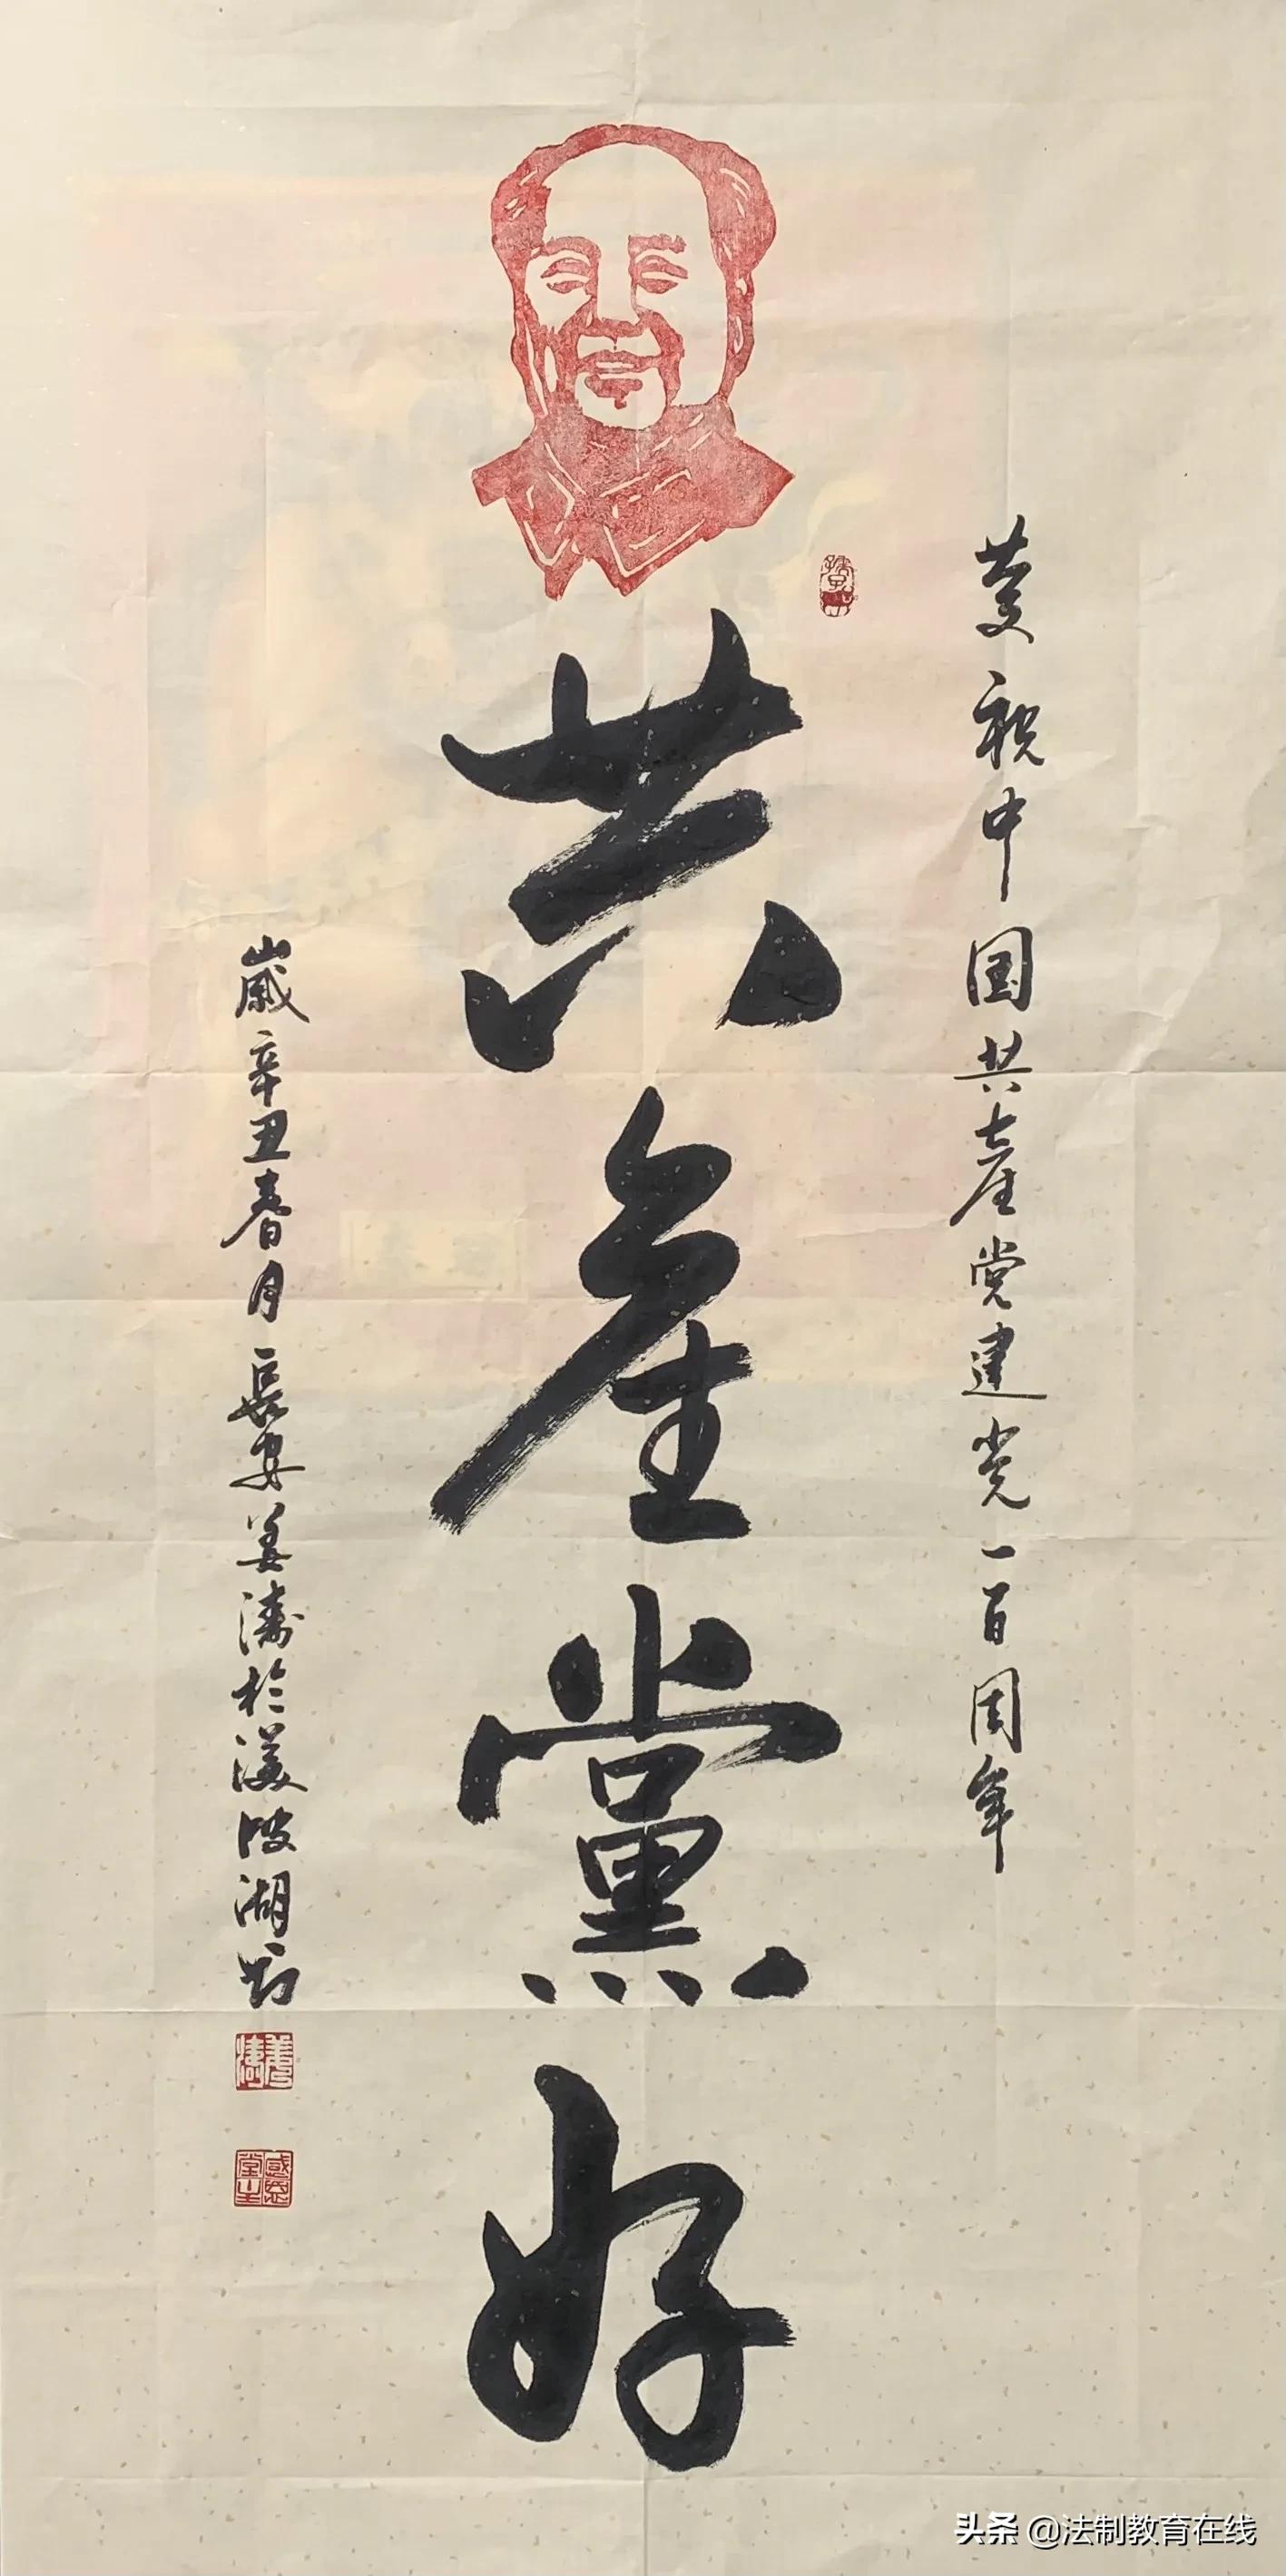 慶祝中国共產党建党一百周年
共產黨好
歲辛丑春月長安姜濤於渼陂湖畔
姜濤
感恩堂主
头条 @法制教育在线